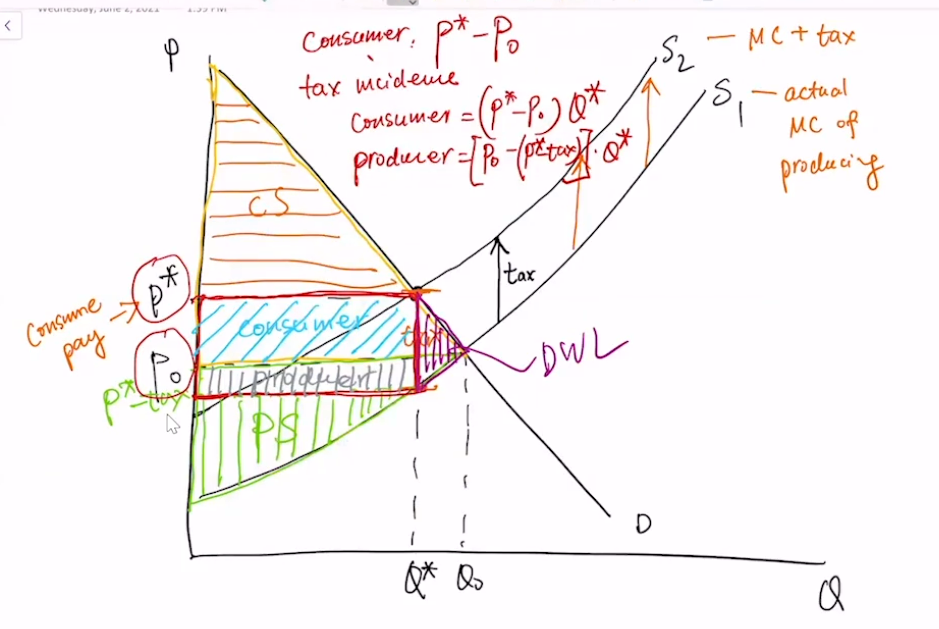 Wednesday, June 2, 2021 1:55 PM
P
Consumer: P* - P₀
tax incidence
Consumer = (P* - P₀) Q*
producer = [P₀ - (P* tax)] · Q*
S₂ — MC + tax
S₁ — actual
MC of
producing
CS
P*
Consume
pay
P₀
P* - tax
consumer
producer
tax
PS
tax
DWL
D
Q* Q₀
Q